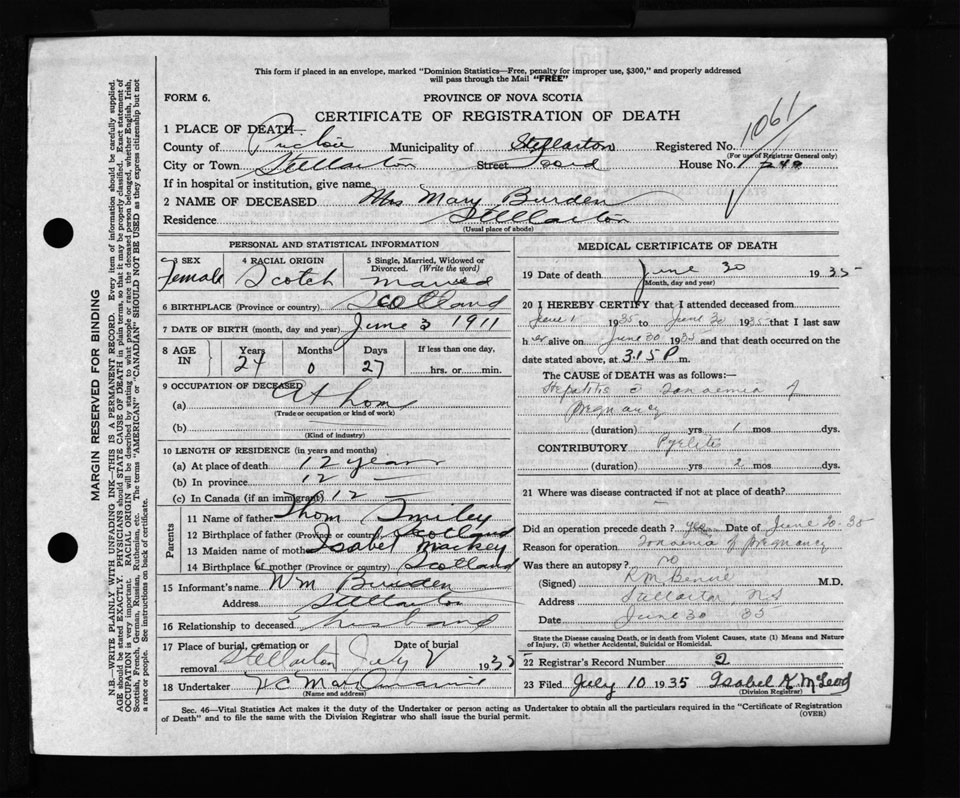 This form if placed in an envelope, marked "Dominion Statistics—Free, penalty for improper use, $300," and properly addressed
will pass through the Mail "FREE"
FORM 6.
PROVINCE OF NOVA SCOTIA
CERTIFICATE OF REGISTRATION OF DEATH
1 PLACE OF DEATH—
County of Pictou Municipality of Stellarton Registered No. 1061
(For use of Registrar General only)
City or Town Stellarton Street Foord House No.
If in hospital or institution, give name
2 NAME OF DECEASED Mrs Mary Burden
Residence Stellarton
(Usual place of abode)
PERSONAL AND STATISTICAL INFORMATION
3 SEX Female
4 RACIAL ORIGIN Scotch
5 Single, Married, Widowed or Divorced. (Write the word) Married
6 BIRTHPLACE (Province or country) Scotland
7 DATE OF BIRTH (month, day and year) June 3 1911
8 AGE IN Years 24 Months 0 Days 27 If less than one day, hrs. or min.
9 OCCUPATION OF DECEASED
(a) At home
(Trade or occupation or kind of work)
(b)
(Kind of industry)
10 LENGTH OF RESIDENCE (in years and months)
(a) At place of death 12 years
(b) In province 12 —
(c) In Canada (if an immigrant) 12 —
Parents
11 Name of father Thom Smiley
12 Birthplace of father (Province or country) Scotland
13 Maiden name of mother Isabel Mackey
14 Birthplace of mother (Province or country) Scotland
15 Informant's name Wm Burden
Address Stellarton
16 Relationship to deceased husband
17 Place of burial, cremation or removal Stellarton Date of burial July 1935
18 Undertaker
(Name and address)
MEDICAL CERTIFICATE OF DEATH
19 Date of death June 30 1935
(Month, day and year)
20 I HEREBY CERTIFY that I attended deceased from
June 1 1935 to June 30 1935 that I last saw
her alive on June 30 1935 and that death occurred on the
date stated above, at 3.15 P m.
The CAUSE of DEATH was as follows:—
Hepatitis c Toxaemia of
Pregnancy
(duration) yrs 1 mos dys.
CONTRIBUTORY Pyelitis
(duration) yrs 2 mos dys.
21 Where was disease contracted if not at place of death?
Did an operation precede death? Yes Date of June 20-35
Reason for operation Toxaemia of Pregnancy
Was there an autopsy? no
(Signed) R M Benvie M.D.
Address Stellarton, N.S
Date June 30 35
State the Disease causing Death, or in death from Violent Causes, state (1) Means and Nature
of Injury, (2) whether Accidental, Suicidal or Homicidal.
22 Registrar's Record Number 2
23 Filed July 10 1935 Isabel K. McLeod
(Division Registrar)
Sec. 46—Vital Statistics Act makes it the duty of the Undertaker or person acting as Undertaker to obtain all the particulars required in the "Certificate of Registration
of Death" and to file the same with the Division Registrar who shall issue the burial permit.
(OVER)
MARGIN RESERVED FOR BINDING
N.B.—WRITE PLAINLY WITH UNFADING INK—THIS IS A PERMANENT RECORD. Every item of information should be carefully supplied.
AGE should be stated EXACTLY. PHYSICIANS should STATE CAUSE OF DEATH in plain terms, so that it may be properly classified. Exact statement of
OCCUPATION is very important. RACIAL ORIGIN will be described by stating to what people or race the deceased person belonged, whether English, Irish,
Scottish, French, German, Russian, Ruthenian, etc. The terms "AMERICAN" or "CANADIAN" SHOULD NOT BE USED as they express citizenship but not
a race or people. See instructions on back of certificate.